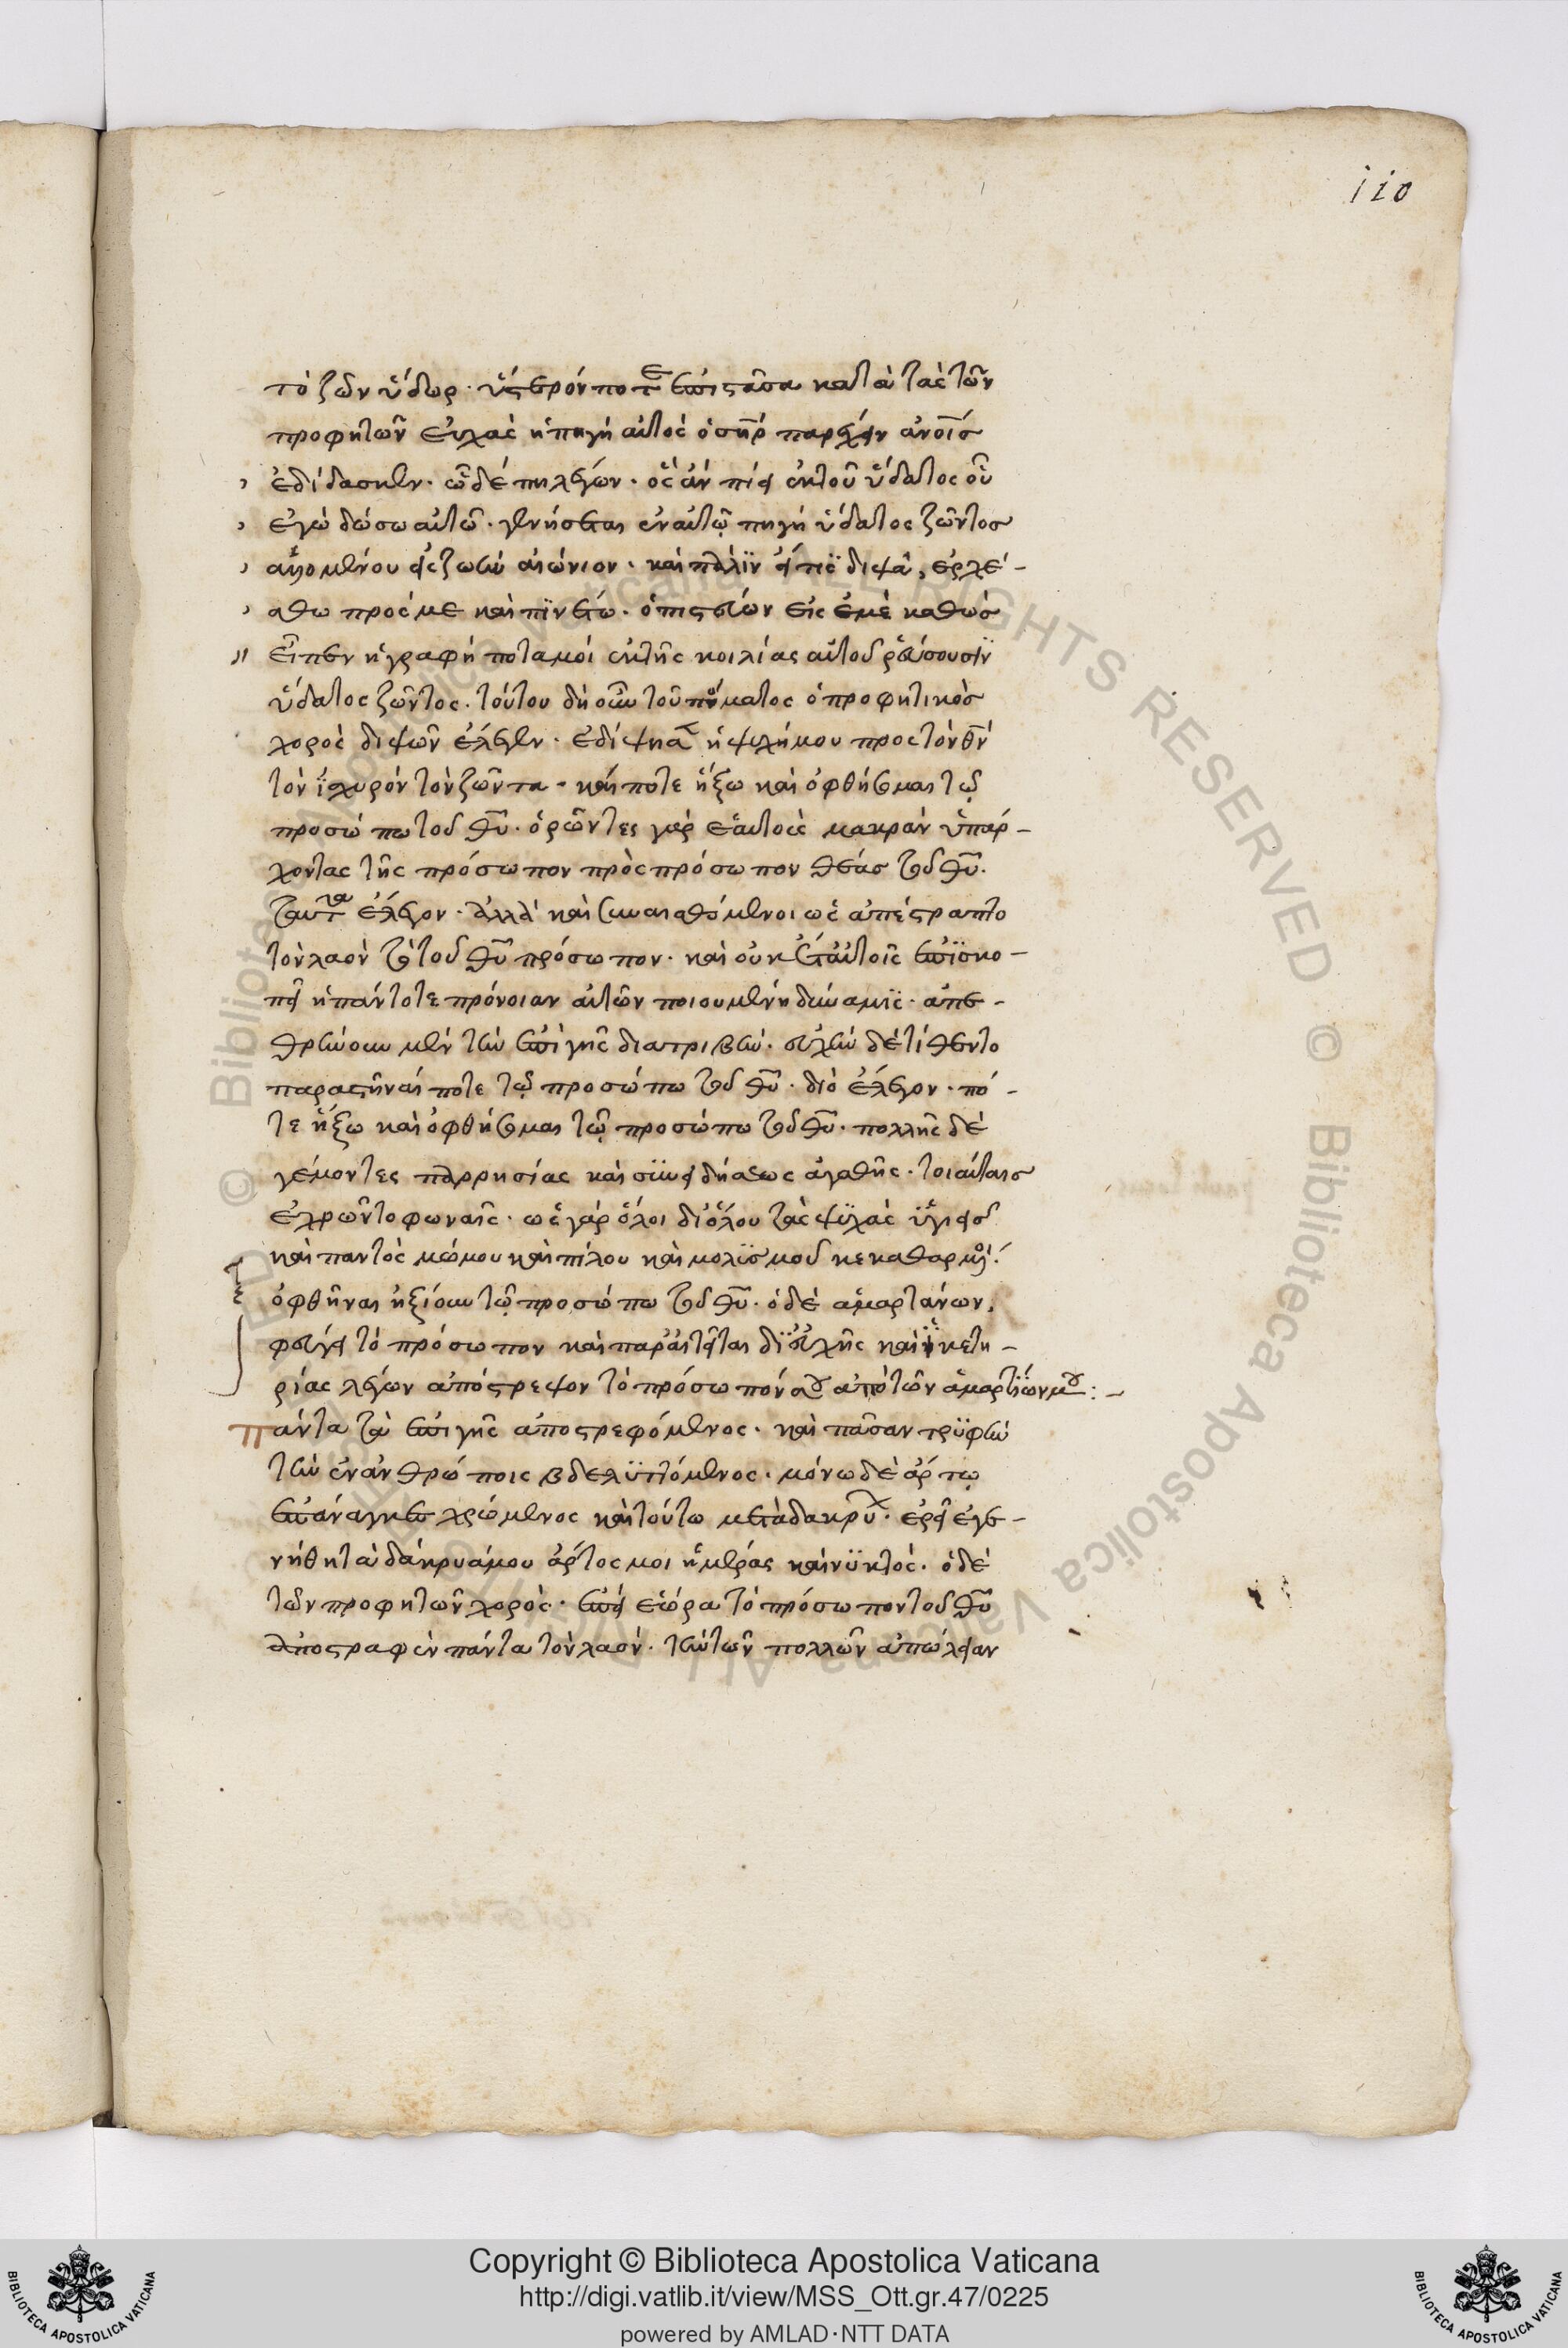 110
τὸ ζῶν ὕδωρ· ὕστερόν ποτε ἐπιστᾶσα κατὰ τὰς τῶν
προφητῶν εὐχὰς ἡ πηγὴ αὐτὸς ὁ σηρ παρὼν ἀνοις
ἐδίδασκεν· ὧδέ πη λέγων· ὃς ἂν πίει ἐκ τοῦ ὕδατος οὗ
ἐγὼ δώσω αὐτῶ· γενήσεται ἐν αὐτῷ πηγὴ ὕδατος ζῶντος
ἁλλομένου εἰς ζωὴν αἰώνιον· καὶ πάλϊν εἴ τις διψᾶ, ἐρχέ-
σθω πρός με καὶ πϊνέτω· ὁ πιστεύων εἰς ἐμὲ καθὼς
εἶπεν ἡ γραφὴ ποταμοὶ ἐκ τῆς κοιλίας αὐτοῦ ῥεύσουσϊν
ὕδατος ζῶντος· τούτου δὴ οὖν τοῦ πόματος ὁ προφητικὸς
χορὸς διψῶν ἔλεγεν· ἐδίψησε ἡ ψυχή μου πρὸς τὸν θν
τὸν ἰσχυρὸν τὸν ζῶντα· καὶ πότε ἥξω καὶ ὀφθήσομαι τῷ
προσώπω τοῦ θυ· ὁρῶντες γὰρ ἑαυτοὺς μακρὰν ὑπάρ-
χοντας τῆς πρόσωπον πρὸς πρόσωπον θέας τοῦ θυ·
ταῦτα ἔλεγον· ἀλλὰ καὶ συναισθόμενοι ὡς ἀπέστραπτο
τὸν λαὸν τὸ τοῦ θυ πρόσωπον· καὶ οὐκ ἔτι αὐτοῖς ἐπϊσκο-
πεῖ ἡ πάντοτε πρόνοιαν αὐτῶν ποιουμένη δύναμϊς· ἀπε-
θρήνουν μὲν τὴν ἐπὶ γῆς διατριβήν· εὐχὴν δὲ τίθεντο
παραστῆναί ποτε τῷ προσώπω τοῦ θυ· διὸ ἔλεγον· πό-
τε ἥξω καὶ ὀφθήσομαι τῷ προσώπω τοῦ θυ· πολλῆς δὲ
γέμοντες παρρησίας καὶ συνειδήσεως ἀγαθῆς· τοιαύταις
ἐχρῶντο φωναῖς· ὡς γὰρ ὅλοι δι' ὅλου τὰς ψϋχὰς ὑγιεῖς
καὶ παντὸς μώμου καὶ πίλου καὶ μολϋσμοῦ κεκαθαρμένοι·
ὀφθῆναι ἠξίουν τῷ προσώπω τοῦ θυ· ὁ δὲ ἁμαρτάνων,
φεύγει τὸ πρόσωπον καὶ παραιτεῖται δϊ εὐχῆς καὶ ἱκετη-
ρίας λέγων ἀπόστρεψον τὸ πρόσωπόν σου ἀπὸ τῶν ἁμαρτϊῶν μου :-
Πάντα τὰ ἐπὶ γῆς ἀποστρεφόμενος· καὶ πᾶσαν τρϋφὴν
τὴν ἐν ἀνθρώποις βδελϋττόμενος· μόνω δὲ ἄρτῳ
ἐπάναγκες χρώμενος καὶ τούτω μετὰ δακρύων· ἐρεῖ ἐγε-
νήθη τὰ δάκρυά μου ἄρτος μοι ἡμέρας καὶ νϋκτός· ὁ δὲ
τῶν προφητῶν χορὸς· ἐπεὶ ἑώρα τὸ πρόσωπον τοῦ θυ
ἀποστραφὲν πάντα τὸν λαόν· τὴν τῶν πολλῶν ἀπώλειαν
Copyright © Biblioteca Apostolica Vaticana
http://digi.vatlib.it/view/MSS_Ott.gr.47/0225
powered by AMLAD·NTT DATA